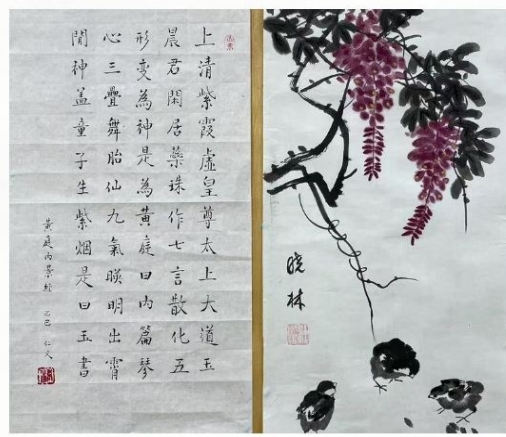 上清紫霞虛皇尊太上大道玉
晨君閑居蘂珠作七言散化五
形變為神是為黃庭曰內篇琴
心三疊舞胎仙九氣暎明出霄
間神盖童子生紫烟是曰玉書
黃庭內景經 乙巳 仁义
晓林